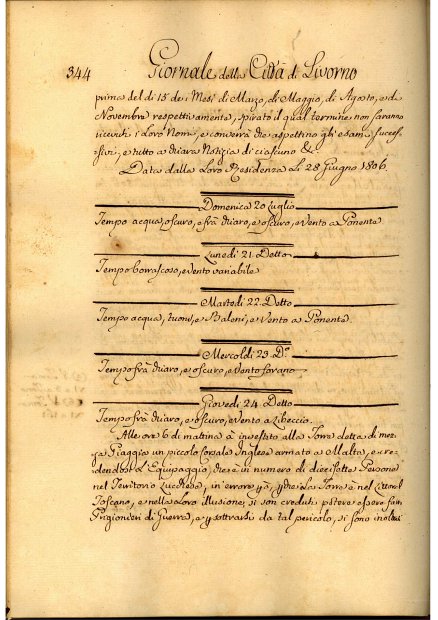 344 Giornale della Città di Livorno
prima del di 15 dei Mesi di Marzo, di Maggio, di Agosto, e di
Novembre respettivamente, spirato il qual termine non saranno
ricevuti i Loro Nomi, e converrà che aspettino gli esami succes-
sivi, e tutto a chiara Notizia di ciascuno &c.
Data dalla Loro Residenza Li 28 Giugno 1806.
Domenica 20 Luglio
Tempo acqua, oscuro, e frà chiaro, e oscuro, e Vento a Ponente
Lunedi 21. Detto
Tempo borrascoso, e Vento variabile
Martedi 22. Detto
Tempo acqua, tuoni, e Baleni, e Vento a Ponente.
Mercoldi 23 D.º
Tempo frà chiaro, e oscuro, e Vento forano
Giovedi 24. Detto
Tempo frà chiaro, e oscuro, e Vento a Libeccio.
Alle ore 6 di mattina à investito alla Torre detta di mez-
za Piaggia un piccolo Corsale Inglese armato a Malta, e cre-
dendosi L'Equipaggio, che è in numero di diecisette Persone
nel Territorio Lucchese, in errore però, perche La Torre è nel Littorale
Toscano, e nella Loro illusione, si son creduti potere essere fatti
Prigionieri di Guerra, e p sottrarsi da tal pericolo, si sono inoltrati